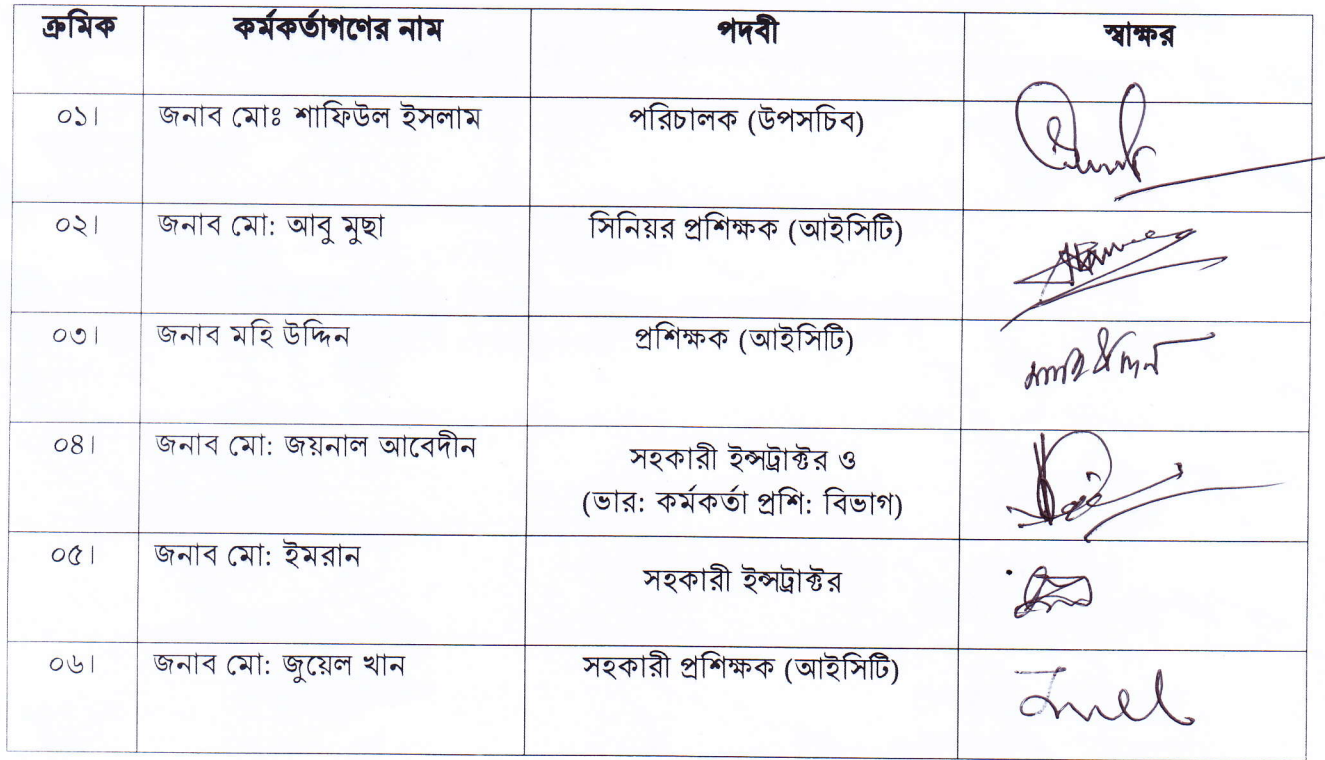 ক্রমিক কর্মকর্তাগণের নাম পদবী স্বাক্ষর
০১। জনাব মোঃ শাফিউল ইসলাম পরিচালক (উপসচিব)
০২। জনাব মো: আবু মুছা সিনিয়র প্রশিক্ষক (আইসিটি)
০৩। জনাব মহি উদ্দিন প্রশিক্ষক (আইসিটি)
মহি উদ্দিন
০৪। জনাব মো: জয়নাল আবেদীন সহকারী ইন্সট্রাক্টর ও
(ভার: কর্মকর্তা প্রশি: বিভাগ)
০৫। জনাব মো: ইমরান সহকারী ইন্সট্রাক্টর
০৬। জনাব মো: জুয়েল খান সহকারী প্রশিক্ষক (আইসিটি)